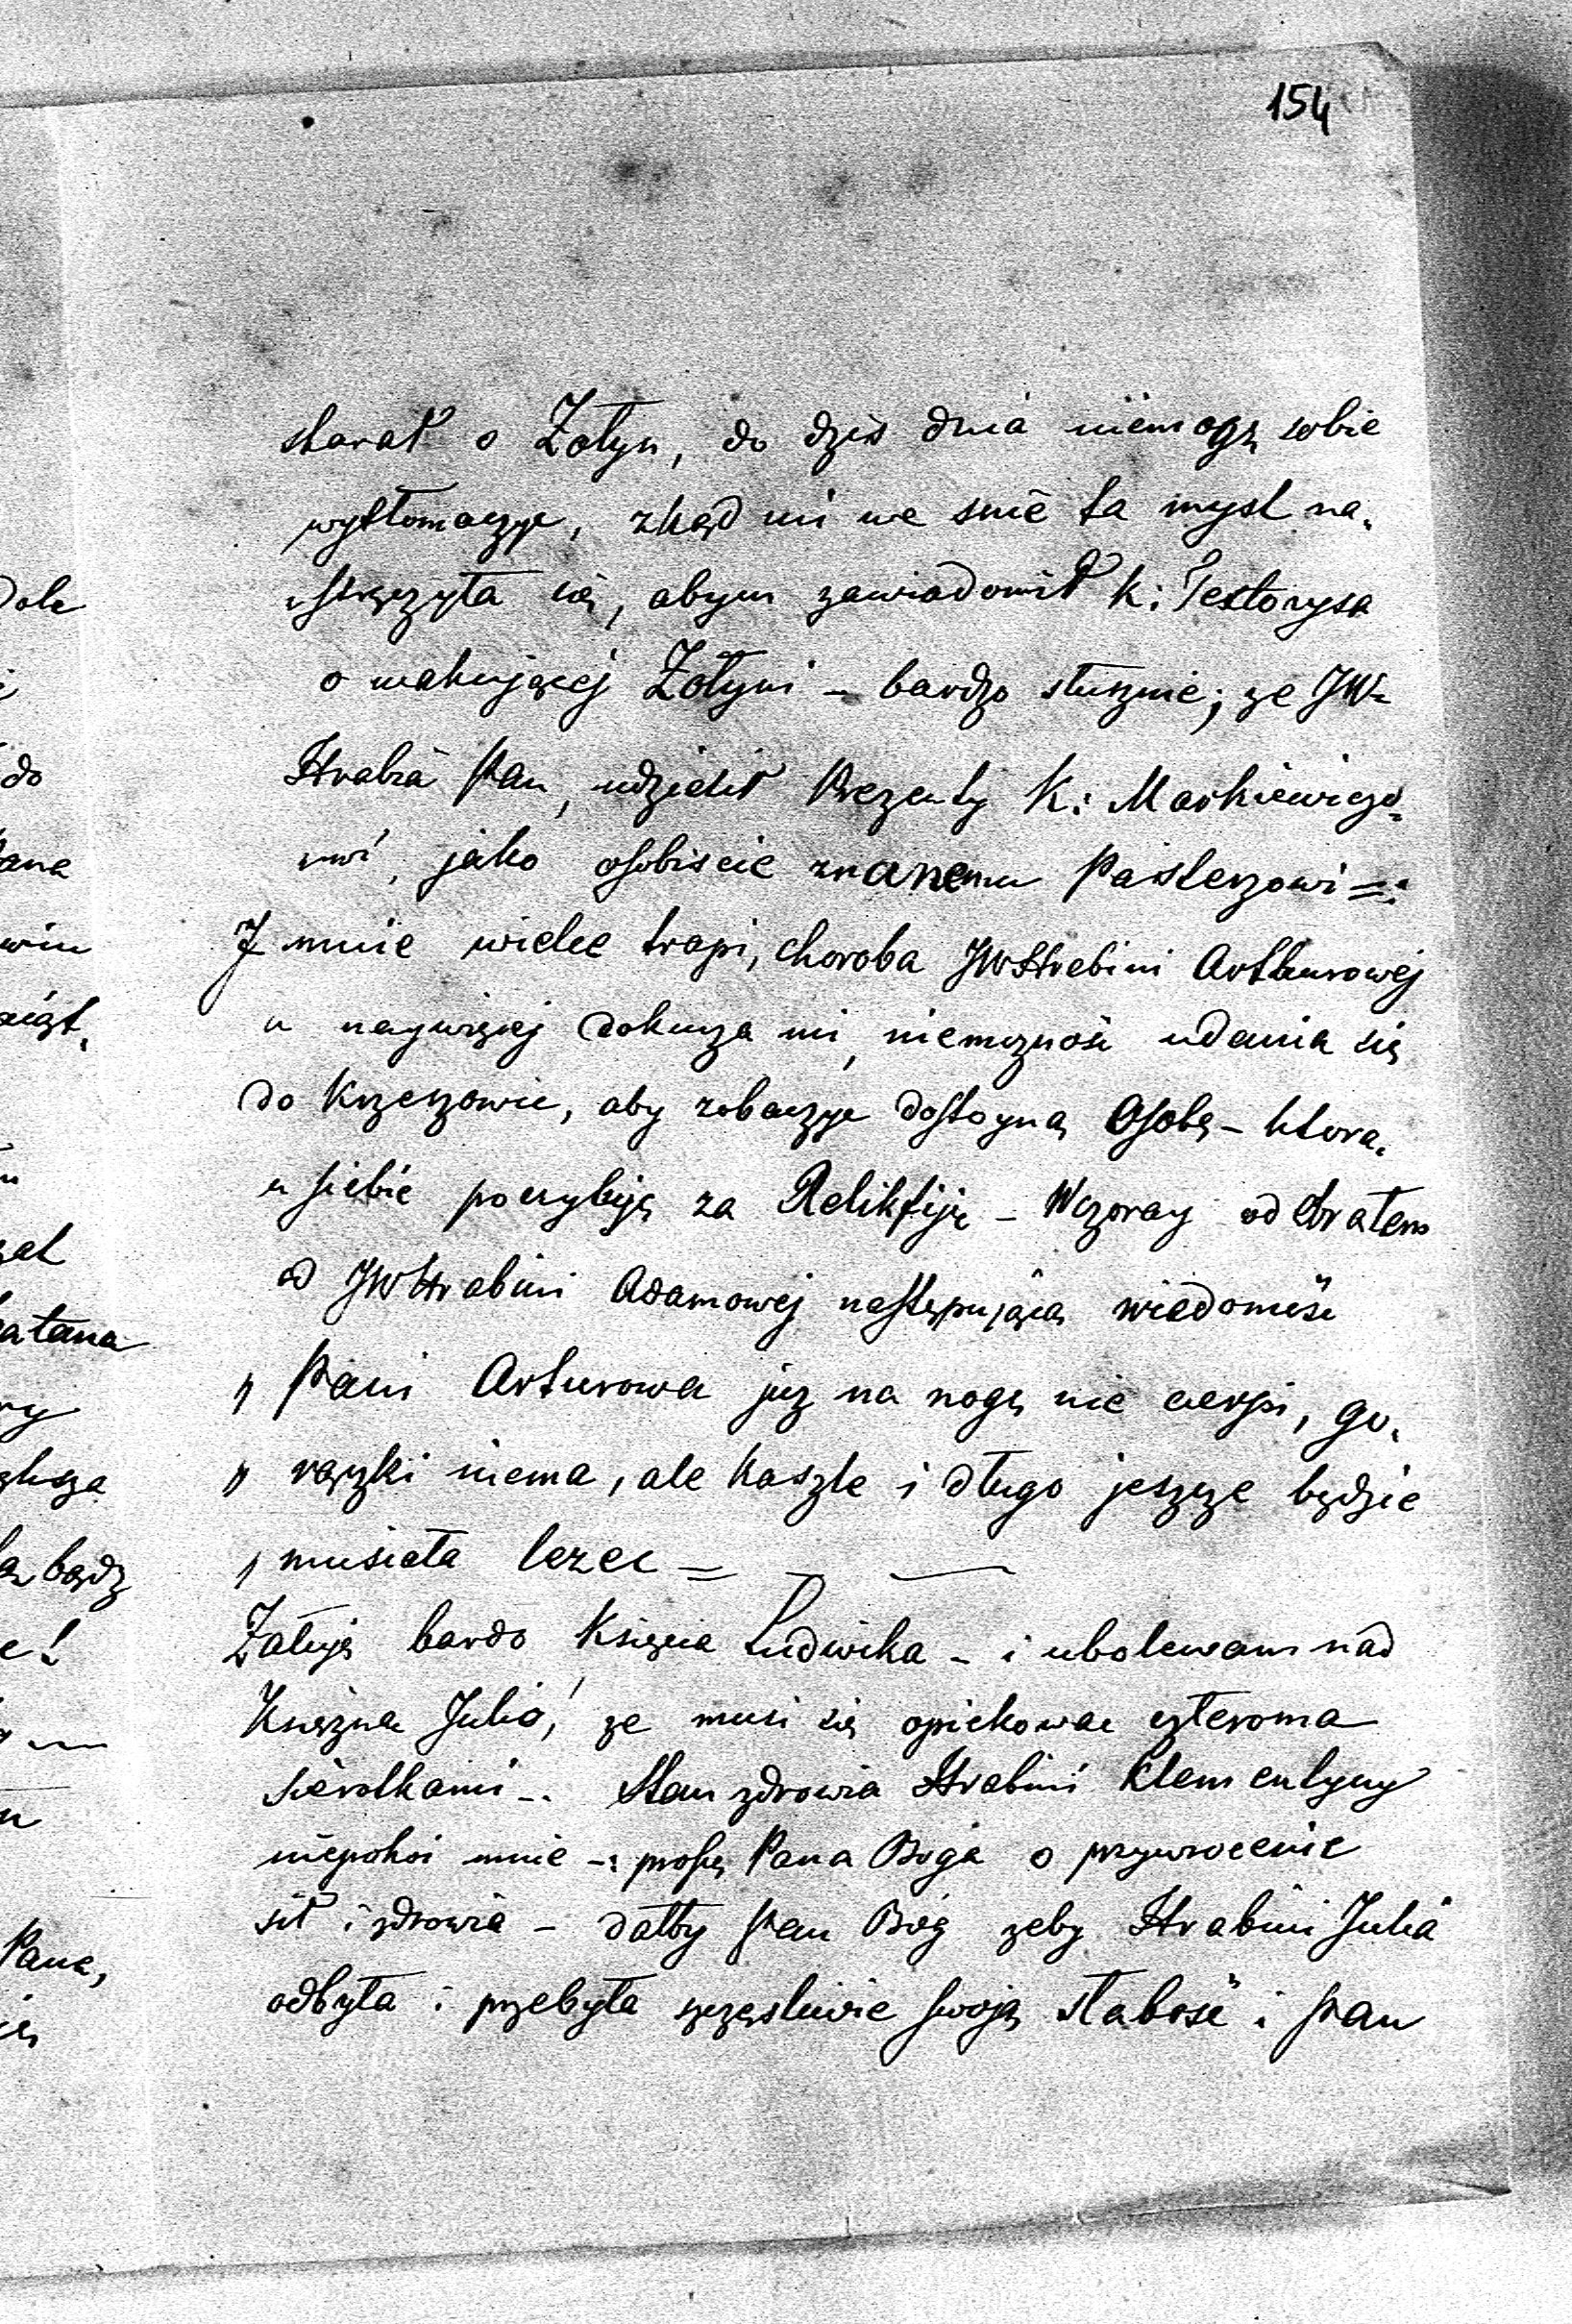 154
starał o Żołyn, do dzis dnia niemogę sobie
wytłomaczyc, zkąd mi we snie ta mysl na„
stręczyła się, abym zawiadomił k: Testorysa
o wakującej Żołyni – bardzo słusznie; ze JW
Hrabia Pan, udzielił Prezenty K: Markiewiczo„
wi, jako osobiscie znanemu Pasterzowi =:
I mnie wielce trapi, choroba JWHrabini Arthurowej
a naywięcej dokucza mi, niemoznosc udania się
do Krzeszowic, aby zobaczyc dostoyną Osobę – ktora„
u siebie poczytuję za Relikfiję – Wczoray odebrałem
od JWHrabini Adamowej następującą wiadomosc
„ Pani Arturowa juz na nogę nie cierpi, go„
„ rączki niema, ale kaszle i długo jeszcze będzie
„ musiała lezec =
Załuję bardo Księcia Ludwika – i ubolewam nad
Księzna Julia, ze musi się opiekowac czteroma
sierotkami –. Stan zdrowia Hrabini Klementyny
niepokoi mnie –: proszę Pana Boga o przywrocenie
sił i zdrowia – dałby Pan Bóg zeby Hrabini Julia
odbyła i przebyła szczęsliwie swoją słabosc i Pan
dole
do
wiu
bądz
Pana,